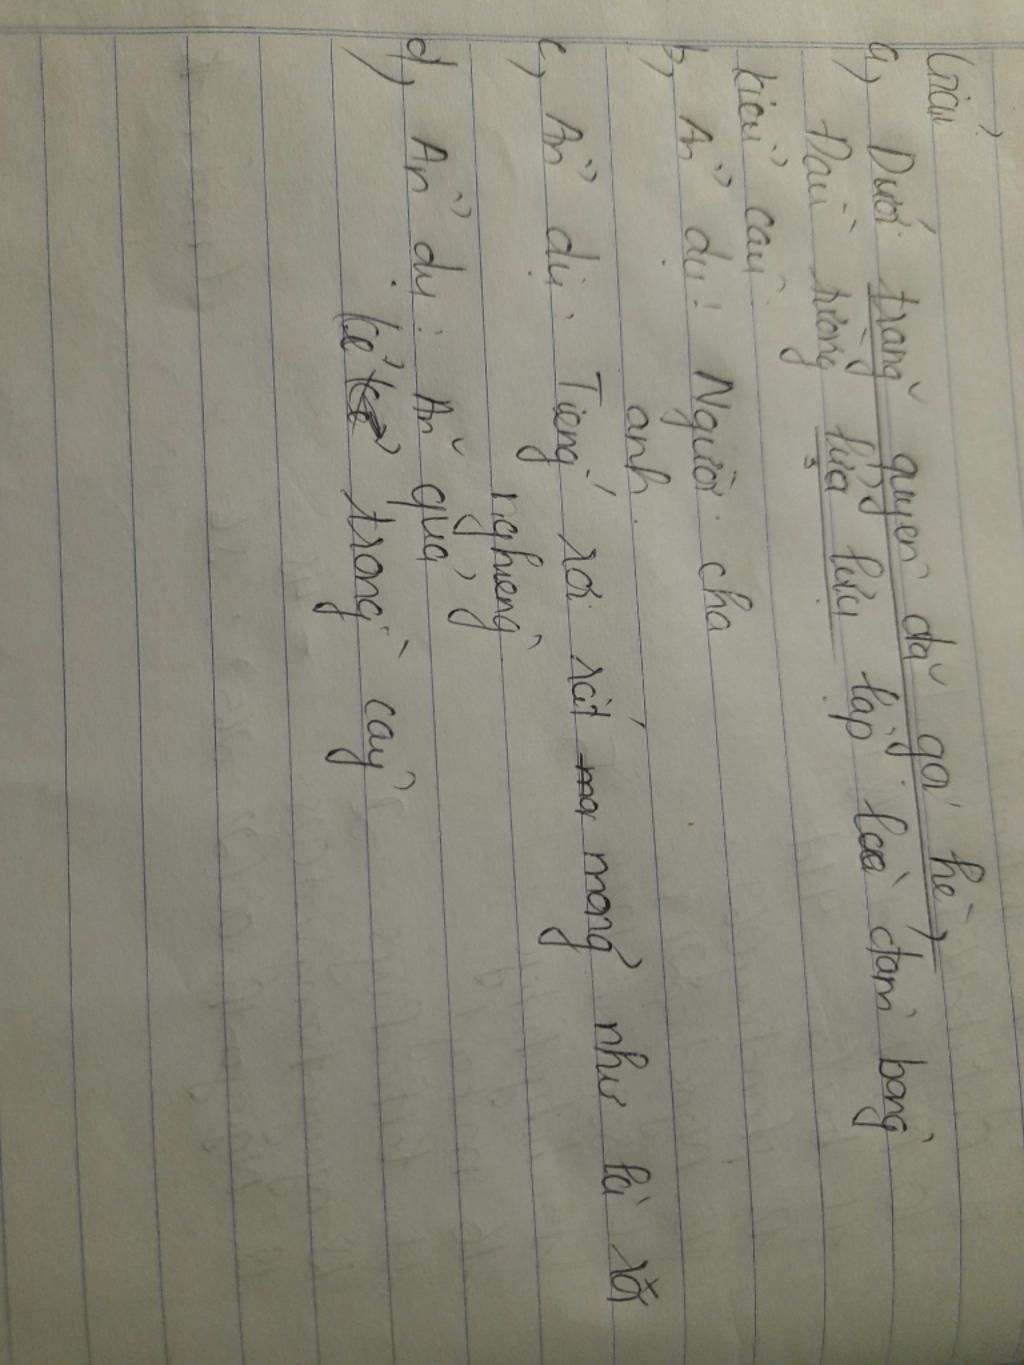 (Trần
a, Dưới trăng quyên đã gọi hè
Đầu tường lửa lựu lập loè đâm bông
kiểu câu
b, Ẩn dụ: Người cha
anh.
c, Ẩn dụ: Tiếng rơi rất mỏng như là rơi
nghiêng
d, Ẩn dụ: Ăn quả
kẻ trồng cây